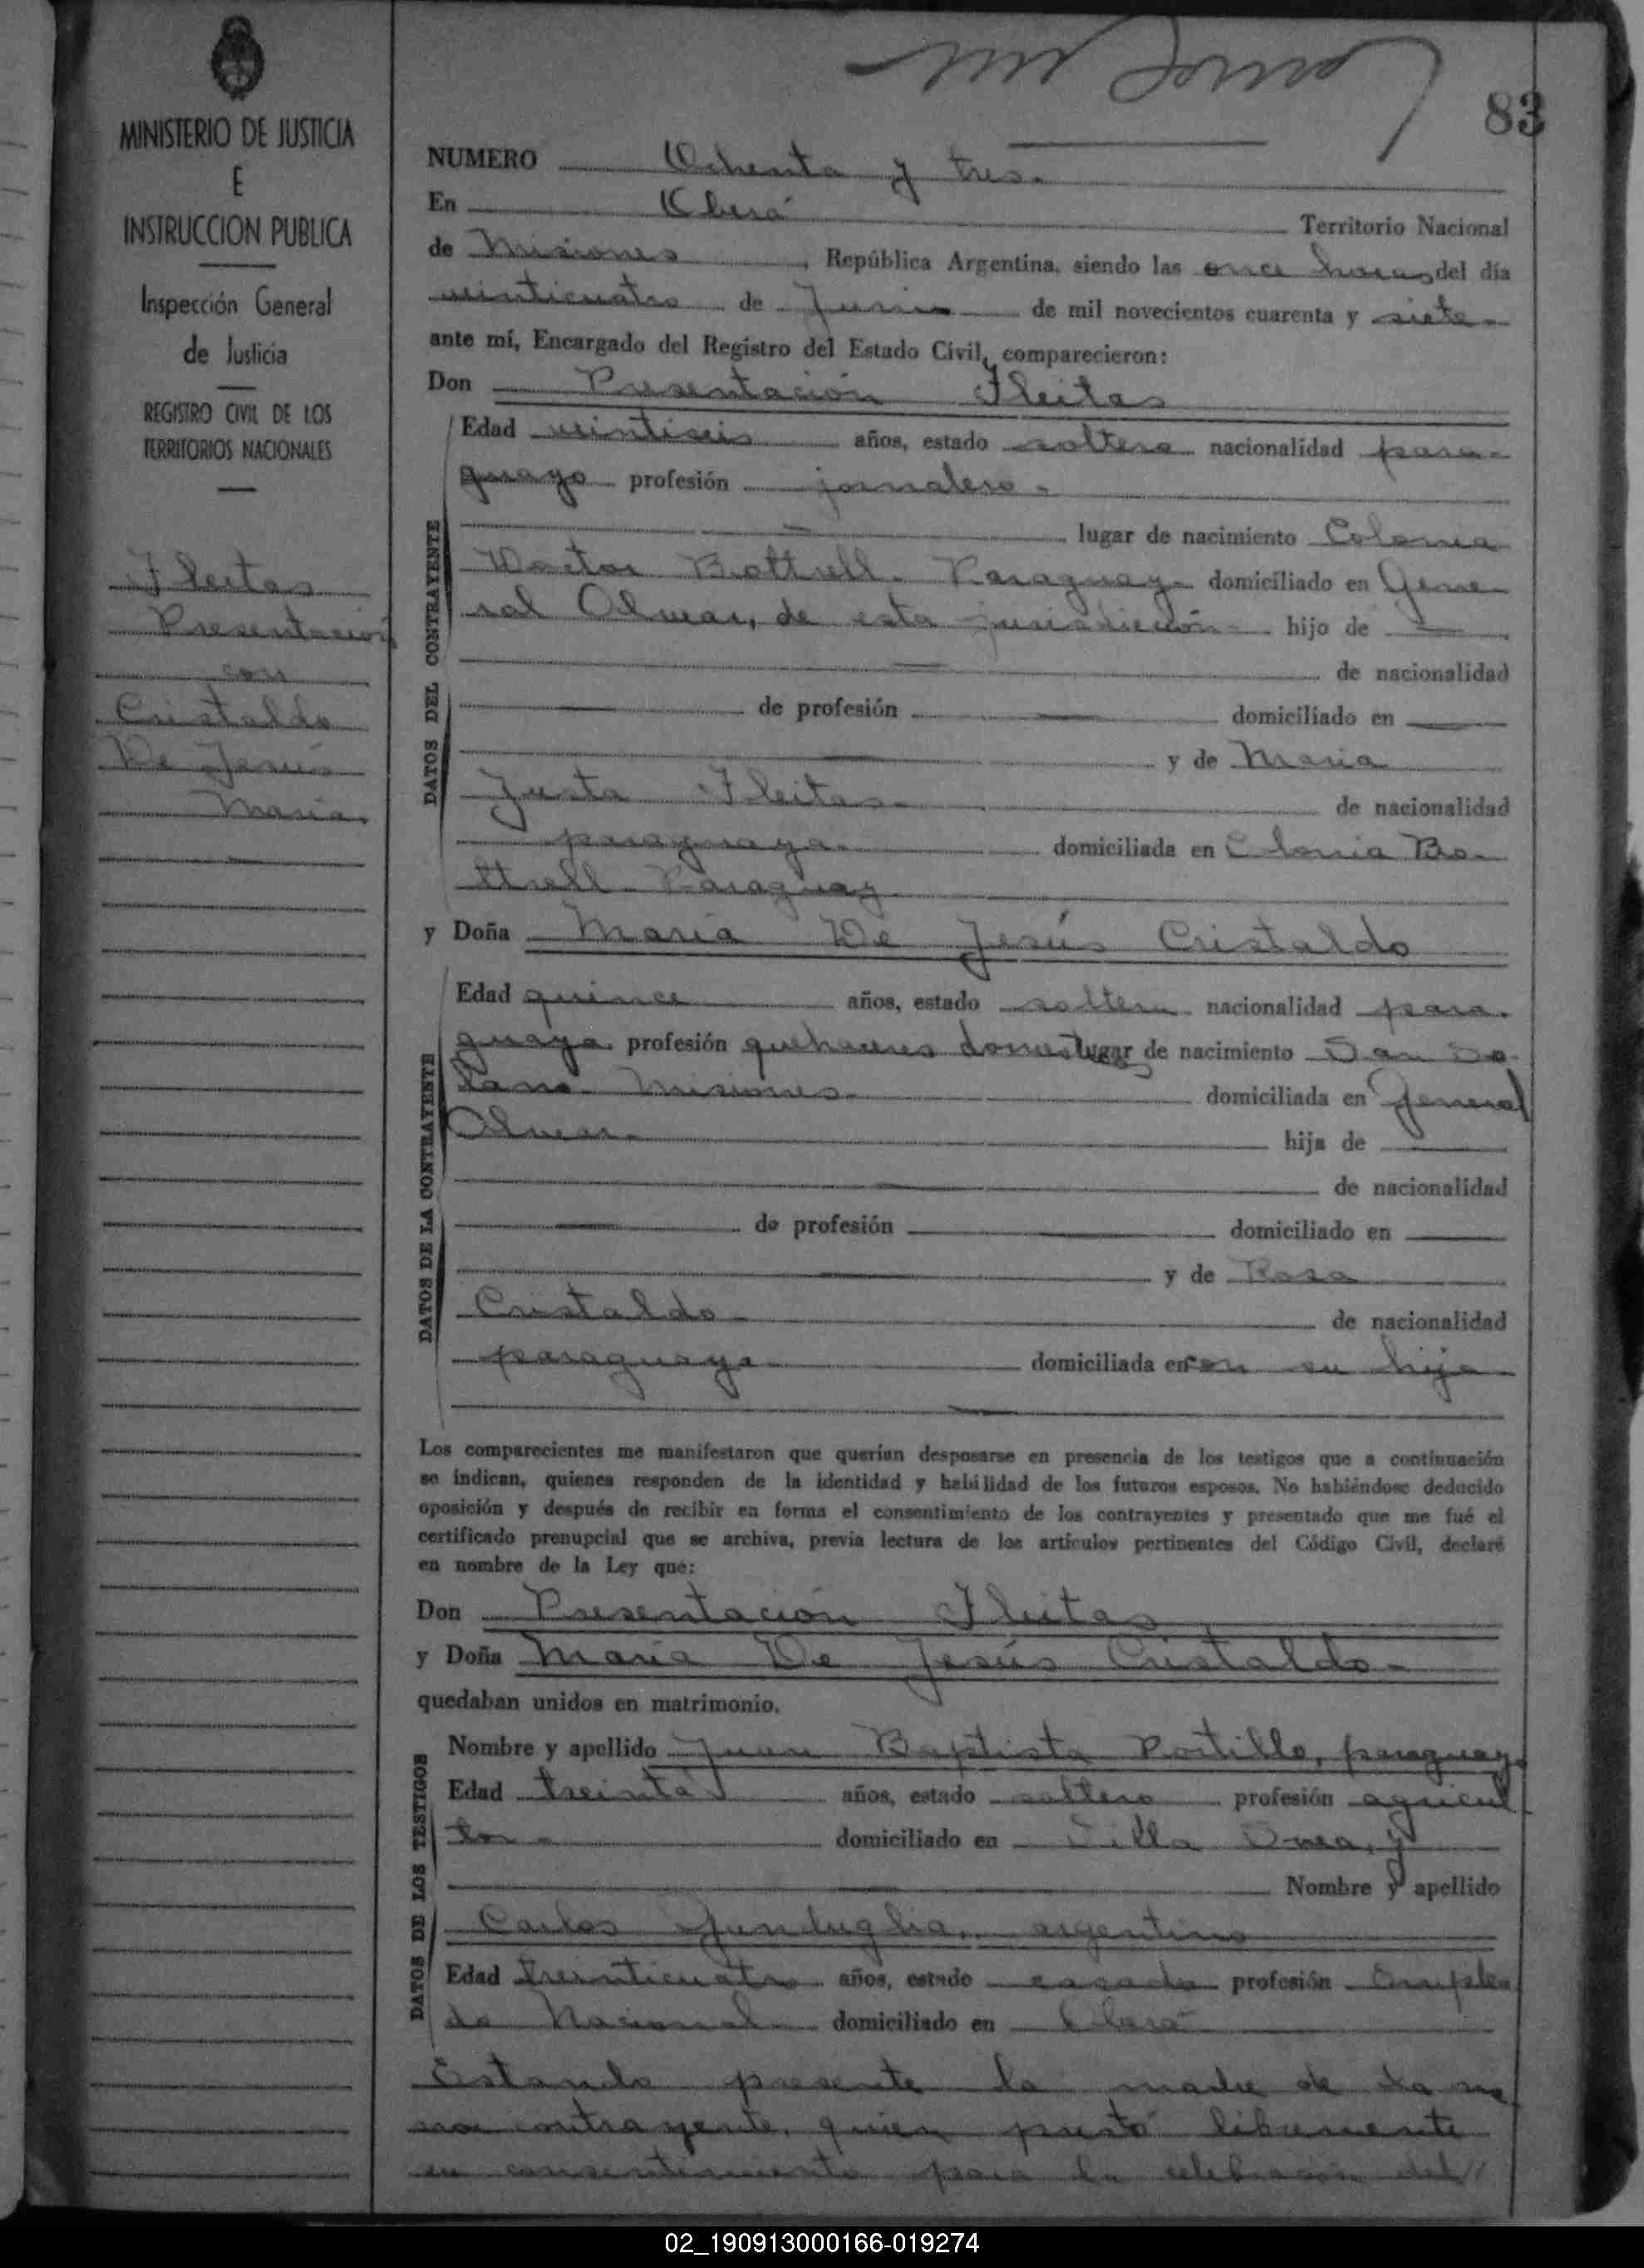 83
MINISTERIO DE JUSTICIA
E
INSTRUCCION PUBLICA
Inspección General
de Justicia
REGISTRO CIVIL DE LOS
TERRITORIOS NACIONALES
Fleitas
Presentación
con
Cristaldo
De Jesús
María.
NUMERO Ochenta y tres.
En Oberá Territorio Nacional
de Misiones, República Argentina, siendo las once horas del día
veinticuatro de Junio de mil novecientos cuarenta y siete
ante mí, Encargado del Registro del Estado Civil, comparecieron:
Don Presentación Fleitas
DATOS DEL CONTRAYENTE
Edad años, estado soltero nacionalidad para-
guayo profesión jornalero-
lugar de nacimiento Colonia
Doctor Bottrell. Paraguay- domiciliado en Gene-
ral Alvear, de esta jurisdicción- hijo de
de nacionalidad
de profesión domiciliado en
y de María
Justa Fleitas- de nacionalidad
paraguaya- domiciliada en Colonia Bo-
ttrell- Paraguay
y Doña María De Jesús Cristaldo
DATOS DE LA CONTRAYENTE
Edad quince años, estado soltera nacionalidad para-
guaya profesión quehaceres domest lugar de nacimiento San So-
lano- Misiones- domiciliada en General
Alvear- hija de
de nacionalidad
de profesión domiciliado en
y de Rosa
Cristaldo- de nacionalidad
paraguaya- domiciliada en con su hija
Los comparecientes me manifestaron que querían desposarse en presencia de los testigos que a continuación
se indican, quienes responden de la identidad y habilidad de los futuros esposos. No habiéndose deducido
oposición y después de recibir en forma el consentimiento de los contrayentes y presentado que me fué el
certificado prenupcial que se archiva, previa lectura de los artículos pertinentes del Código Civil, declaré
en nombre de la Ley que:
Don Presentación Fleitas
y Doña María De Jesús Cristaldo-
quedaban unidos en matrimonio.
DATOS DE LOS TESTIGOS
Nombre y apellido Juan Baptista Portillo, paraguayo
Edad treinta años, estado soltero profesión agricul
tor- domiciliado en Villa y
Nombre y apellido
Carlos argentino
Edad treinticuatro años, estado casado profesión Emplea
do Nacional domiciliado en Oberá
Estando presente la madre de la me
nor contrayente, quien prestó libremente
su consentimiento para la celebración del
02_190913000166-019274